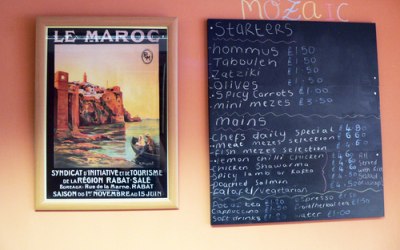 LE MAROC
SYNDICAT D'INITIATIVE et de TOURISME
de la RÉGION RABAT-SALÉ
BUREAUX: Rue de la Marne, RABAT
SAISON DU 1er NOVEMBRE AU 15 JUIN
MOZAIC
STARTERS
hommus £1.50
Tabouleh £1.50
Zatziki £1.50
Olives £1.50
Spicy Carrots £1.50
mini mezes £3.50
mains
Chefs daily special £4.80
Meat mezes selection
fish mezes selection
Lemon chilli Chicken
Chicken Shawarma
Spicy lamb or Kofta
Salmon
Falafel/vegetarian
tea
Espresso
Cappuccino
Soft drinks
water £1.00